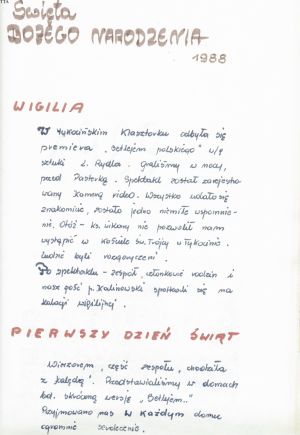 Święta
BOŻEGO NARODZENIA
1988
WIGILIA
W tykocińskim Klasztorku odbyła się
premiera „Betlejem polskiego" w/g
sztuki L. Rydla. Graliśmy w nocy,
przed Pasterką. Spektakl został zarejestro
wany kamerą video. Wszystko udało się
znakomicie, zostało jedno niemiłe wspomnie-
nie. Otóż - ks. wikary nie pozwolił nam
wystąpić w kościele św. Trójcy w Tykocinie.
Ludzie byli rozgoryczeni.
Po spektaklu - zespół, członkowie rodzin i
nasz gość p. Kalinowski spotkali się na
kolacji wigilijnej.
PIERWSZY DZIEŃ ŚWIĄT
Wieczorem, część zespołu, chodziła
z kolędą". Przedstawialiśmy w domach
bd. skróconą wersję „Betlejem.."
Przyjmowano nas w każdym domu
ogromnie serdecznie.